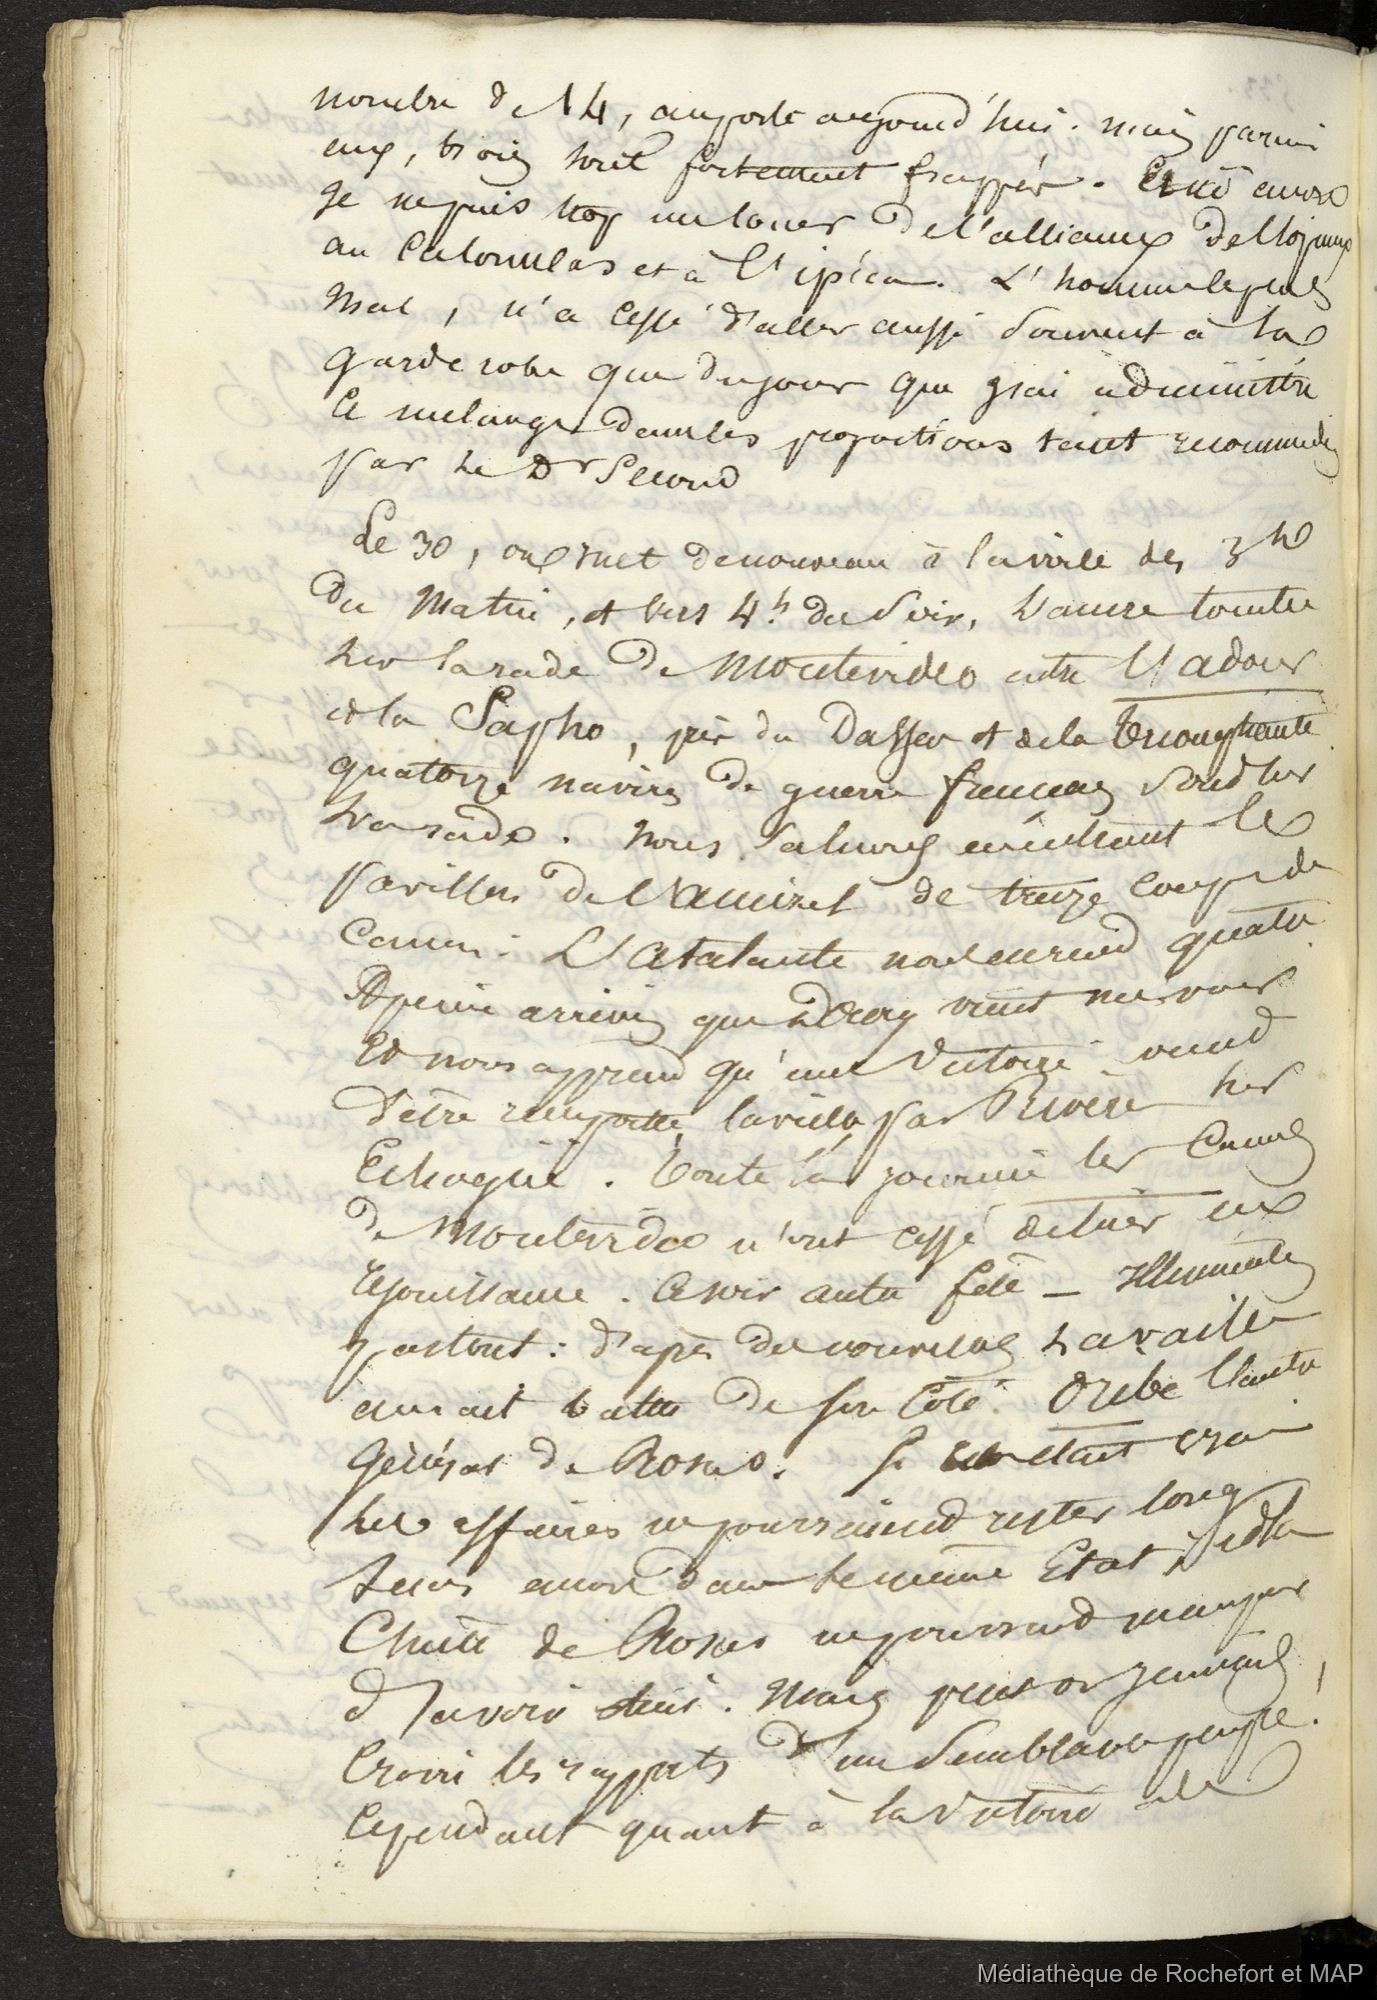 nombre de 14, au poste aujourd'hui. mais parmi
eux, trois sont fortement frappés. encore
Je ne puis trop me louer de l'alliance de l'opium
au Calomelas et à l'ipéca. L'homme le plus
mal, n'a cessé d'aller aussi souvent à la
garde robe que du jour que j'ai administré
ce mélange dans les proportions recommandé
par le Dr Second
Le 30, on met de nouveau à la voile dès 3h
du matin, et vers 4h du soir, l'ancre tombe
sur la rade de Montevideo entre l'adour
et la Sapho, près du Dassas et de la Triomphante
quatorze navires de guerre français sont sur
la rade. nous saluons en entrant le
pavillon de l'amiral de treize coups de
canon. L'Atalante nous en rend quatre
A peine arrivés que vient me voir
et nous apprend qu'une victoire vient
d'être remportée la veille par Rivera sur
Echague. Toute la journée les canons
de Montevideo n'ont cessé de tirer en
réjouissance. Ce soir autre fête – Illuminations
partout : d'après des nouvelles Lavaille
aurait battu de son côté Oribe l'autre
Général de Rosas. Si c'était vrai
les affaires ne pourraient rester long
tems encore dans le même Etat, et la
Chute de Rosas ne pourrait manquer
d'avoir lieu. Mais peut on jamais
croire les rapports d'un semblable peuple!
Cependant quant à la victoire de